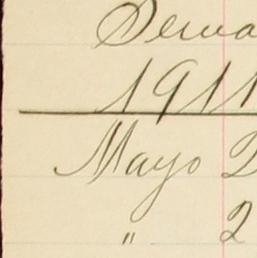 1911
Mayo 2
" 2